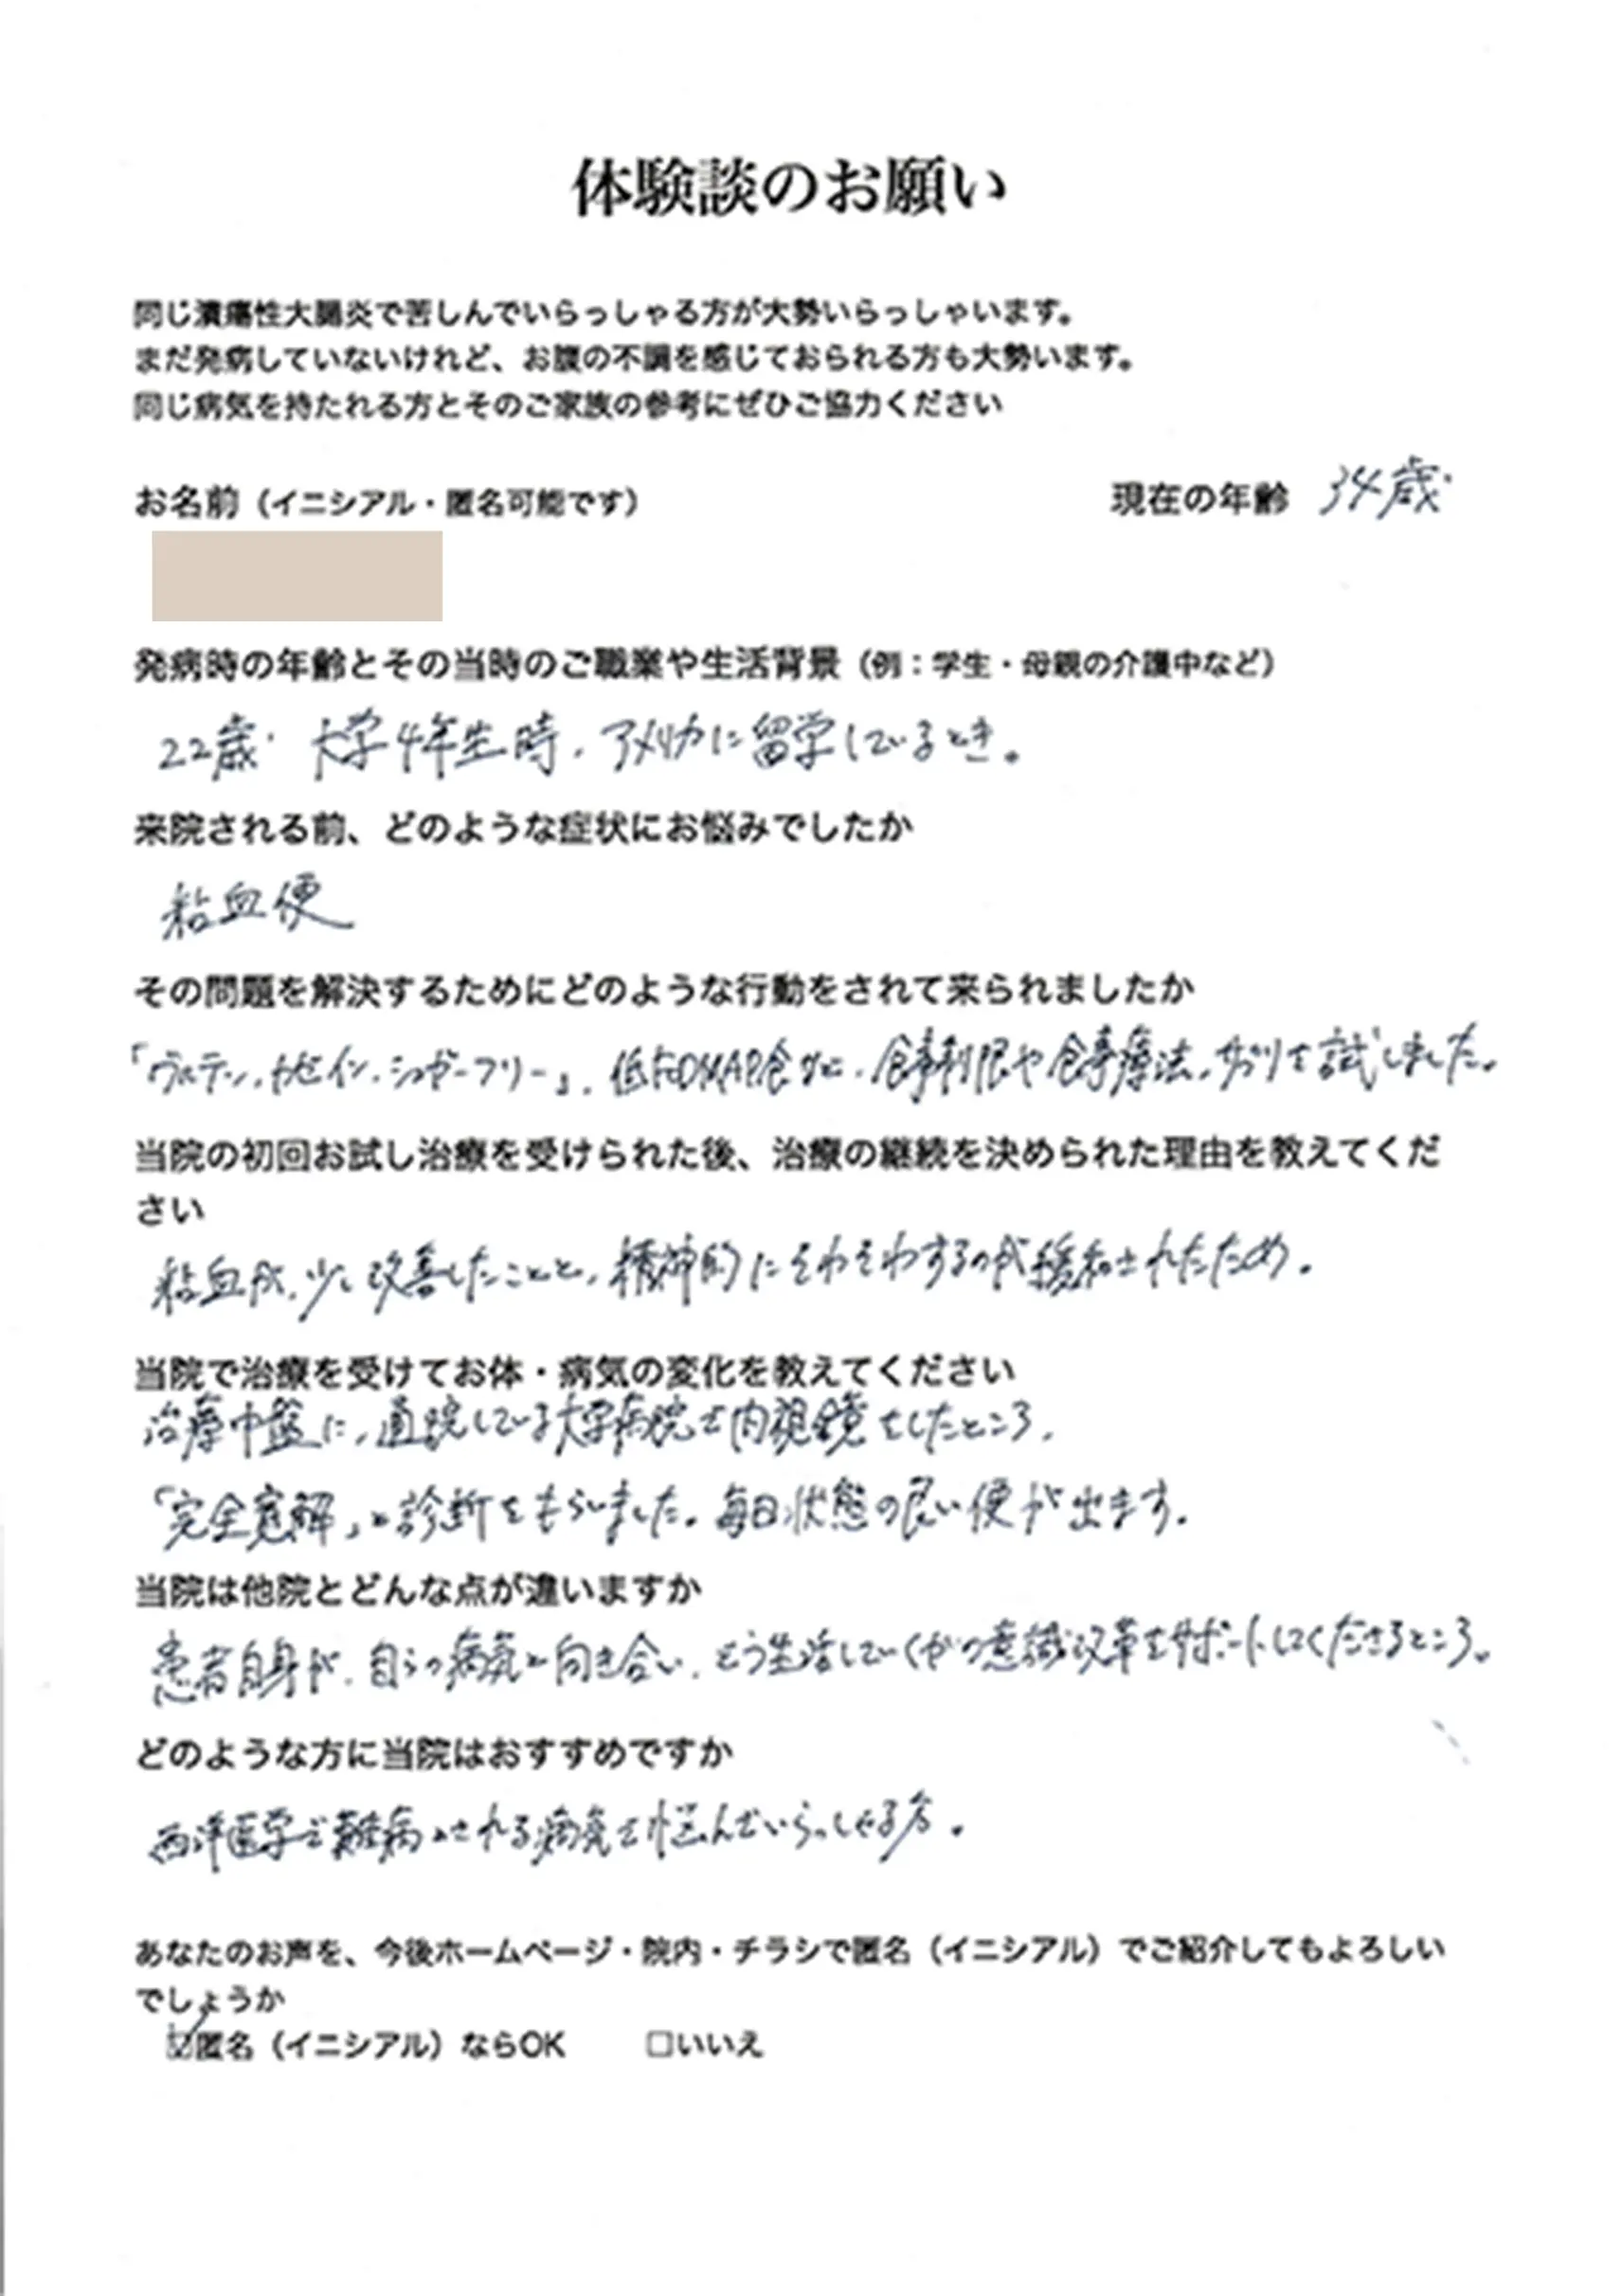 体験談のお願い
同じ潰瘍性大腸炎で苦しんでいらっしゃる方が大勢いらっしゃいます。
まだ発病していないけれど、お腹の不調を感じておられる方も大勢います。
同じ病気を持たれる方とそのご家族の参考にぜひご協力ください
お名前（イニシアル・匿名可能です） 現在の年齢 34歳
発病時の年齢とその当時のご職業や生活背景（例：学生・母親の介護中など）
22歳 大学4年生時、アメリカに留学しているとき。
来院される前、どのような症状にお悩みでしたか
粘血便
その問題を解決するためにどのような行動をされて来られましたか
「グルテン、カゼイン、シュガーフリー」、低FODMAP食など、食事制限や食事療法、サプリを試しました。
当院の初回お試し治療を受けられた後、治療の継続を決められた理由を教えてくだ
さい
粘血が、少し改善したことと、精神的にそわそわするのが緩和されたため。
当院で治療を受けてお体・病気の変化を教えてください
治療中盤に、通院している大学病院で内視鏡をしたところ、
「完全寛解」と診断をもらいました。毎日状態の良い便が出ます。
当院は他院とどんな点が違いますか
患者自身が、自らの病気と向き合い、どう生活していくかの意識改革をサポートしてくださるところ。
どのような方に当院はおすすめですか
西洋医学で難病とされる病気で悩んでいらっしゃる方。
あなたのお声を、今後ホームページ・院内・チラシで匿名（イニシアル）でご紹介してもよろしい
でしょうか
☑匿名（イニシアル）ならOK □いいえ